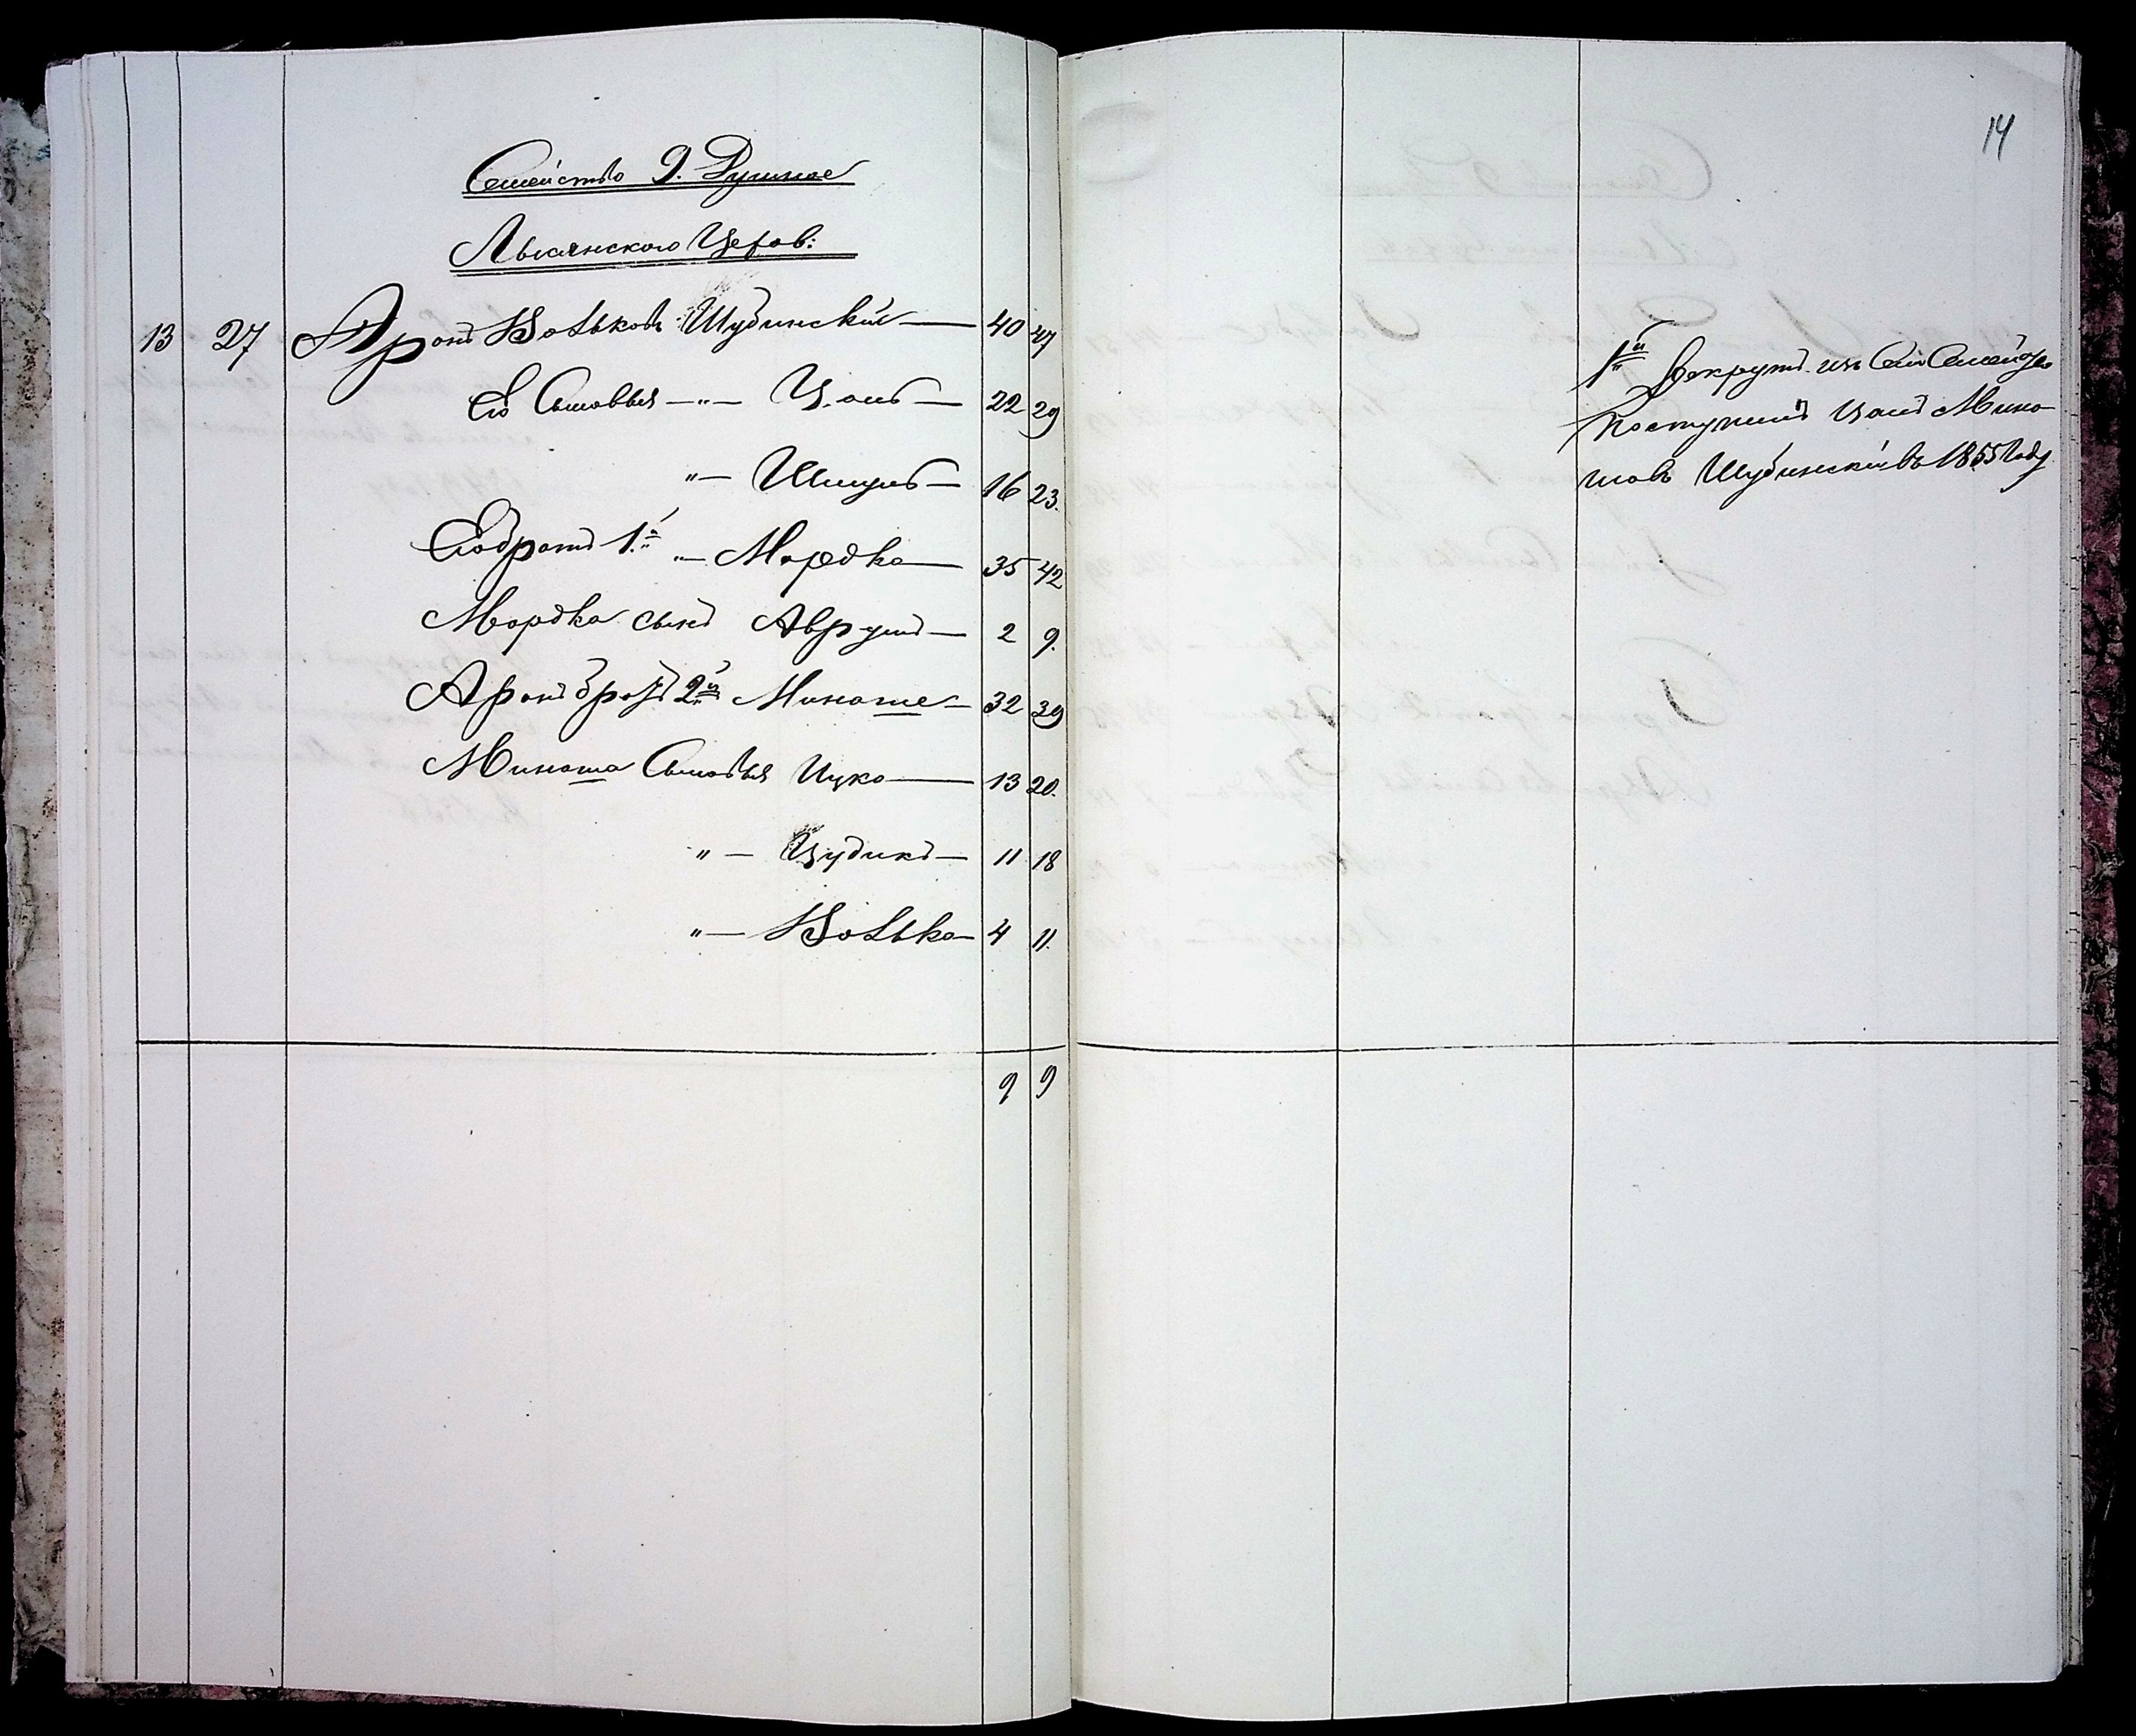 14
Семейство 9. Душное
Лысянского Uерав:
13 27 Аронъ Вольковъ Шубинскій — 40 47
Его Сыновья —"— Ц. аль — 22 29
"— Шмуль — 16 23.
Его братъ 1й "— Мордко — 35 42
Мордка сынъ Аврумъ — 2 9.
Аронъ братъ 2й Миноше — 32 39
Миноша Сыновья Ицко — 13 20.
" — Цудикъ — 11 18
"— Волько — 4 11.
9 9
1й Рекрутъ изъ Сей Семейства
поступилъ Мино-
шовъ Шубинскій въ 1855 Году